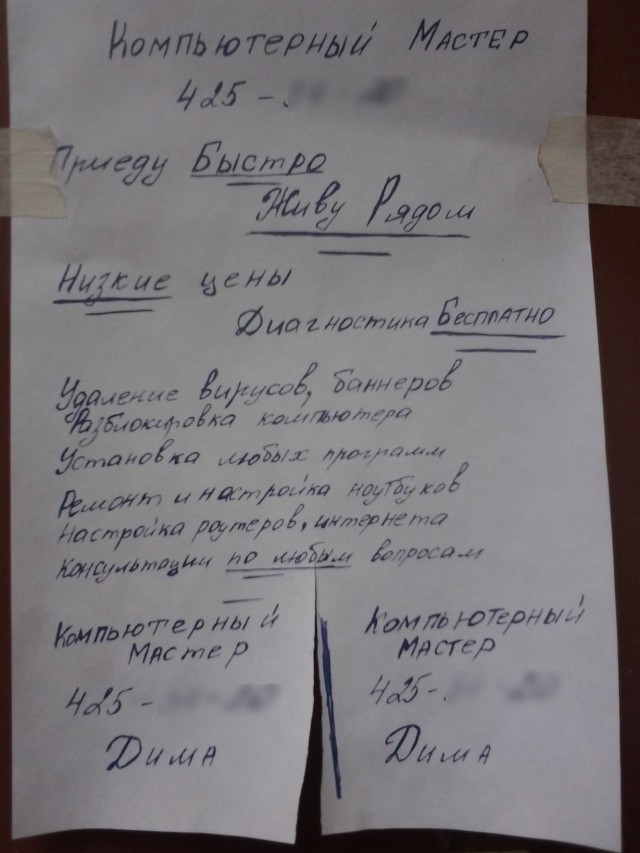 Компьютерный Мастер
425 -
Приеду Быстро
Живу Рядом
Низкие цены
Диагностика Бесплатно
Удаление вирусов, баннеров
Разблокировка компьютера
Установка любых программ
Ремонт и настройка ноутбуков
Настройка роутеров, интернета
Консультации по любым вопросам
Компьютерный
Мастер
425 -
Дима
Компьютерный
Мастер
425 -
Дима